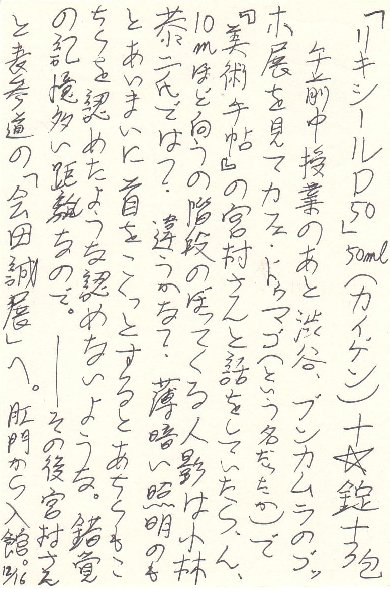 「リキシールD50」50ml（カイゲン）＋☆錠＋3包
　午前中授業のあと渋谷、ブンカムラのゴッ
ホ展を見てカフェ・ドゥマゴ（という名だったか）で
『美術手帖』の宮村さんと話をしていたら、ん、
10mほど向うの階段のぼってくる人影は小林
恭二氏では？　違うかな？　薄暗い照明のも
とあいまいに首をこくっとするとあちらもこ
ちらを認めたような認めないような。錯覚
の記憶多い距離なので。　――その後宮村さん
と表参道の「会田誠展」へ。肛門から入館。12/16